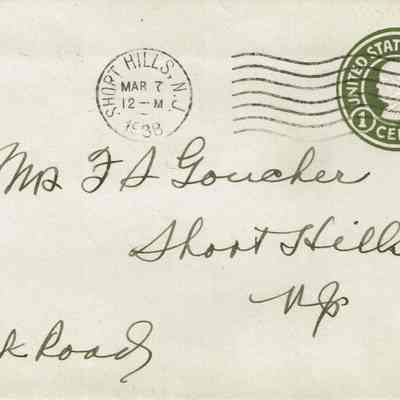 SHORT HILLS, N.J.
MAR 7
12-M
1938
UNITED STATES
1 CEN
Mrs F S Goucher
Short Hills
NJ
k Road